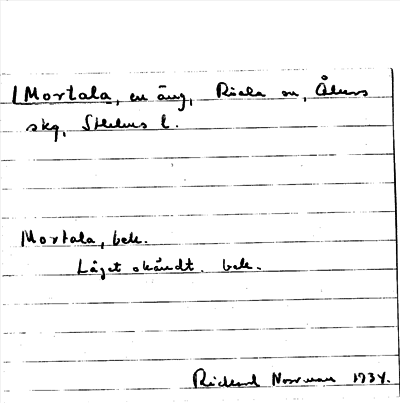 (Mortala, en äng, Riala sn, Åkers
skg, Sthlms l.
Mortala, bek.
Läget okändt. bek.
Rickard Norrman 1934.